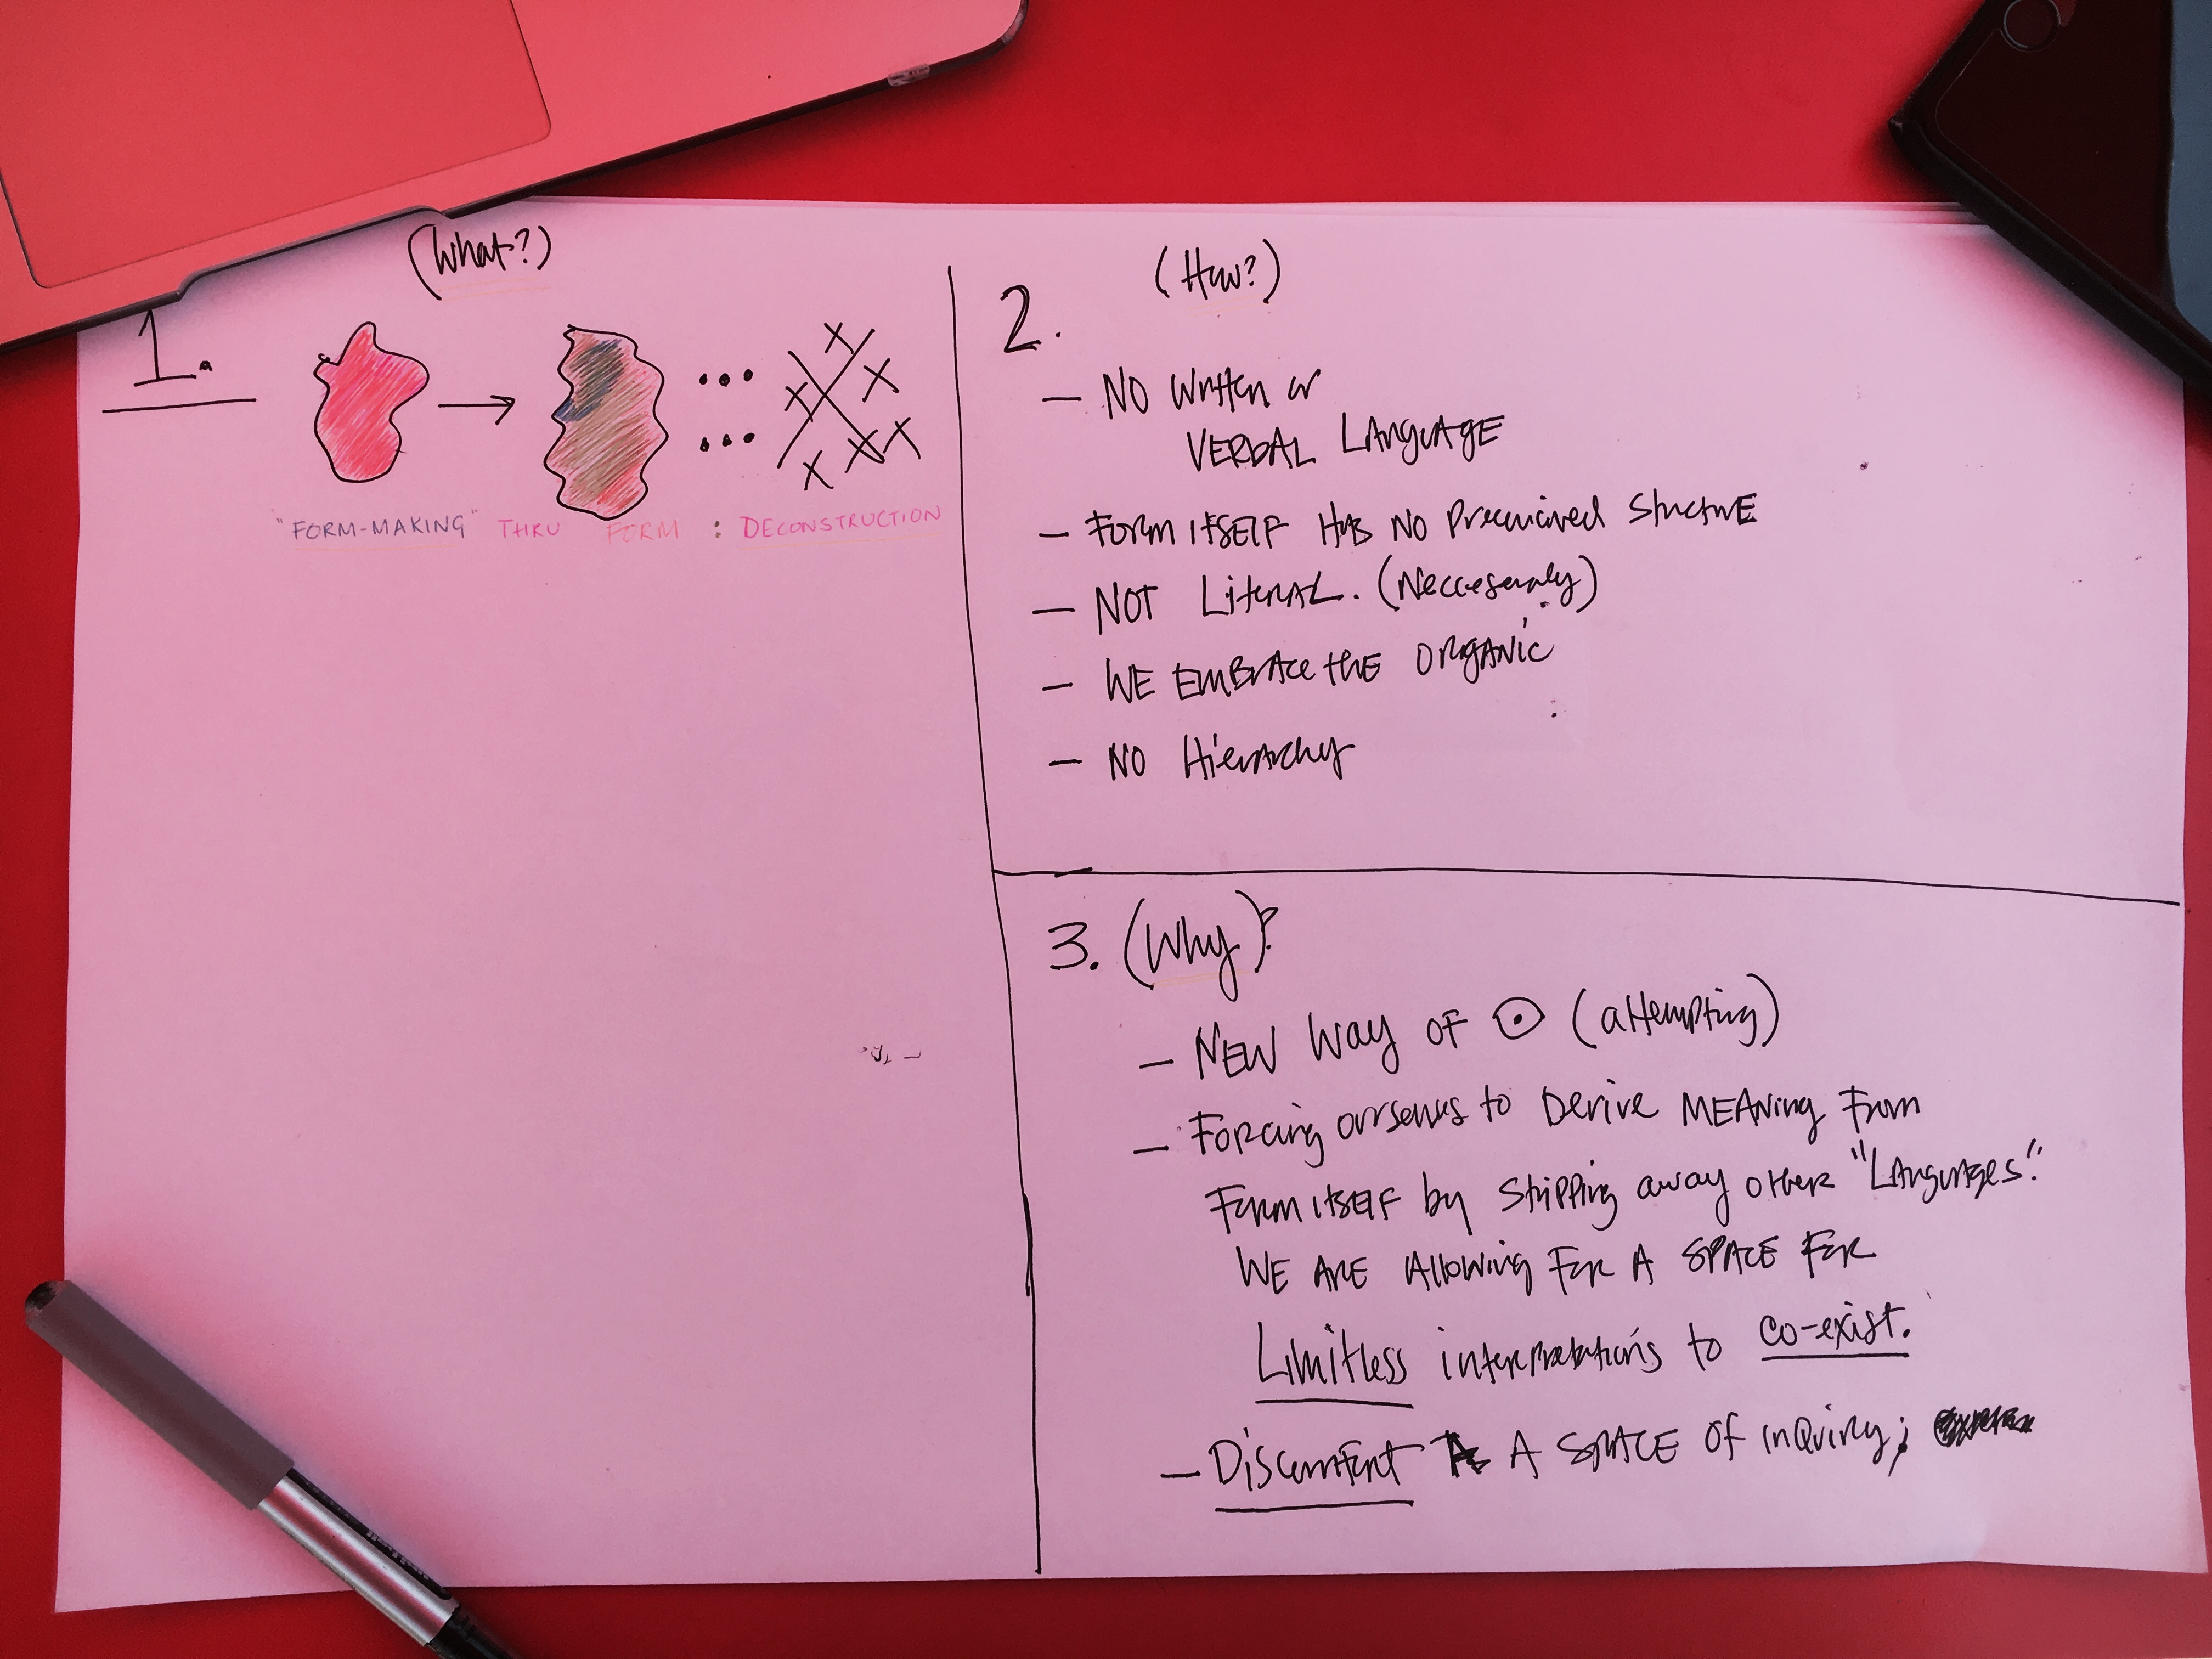 (What?)
1.
"FORM-MAKING" THRU FORM : DECONSTRUCTION
(How?)
2.
— NO Written or
VERBAL LANGUAGE
— FORM ITSELF HAS NO Preconceived StructurE
— NOT LiterAL. (Necceseraly)
— WE EMBRAce thE ORgANic
— NO HierArchy
3. (Why)?
— NEW Way OF (attempting)
— Forcing ourselves to Derive MEANing From
Form itSELF by Stripping away other "LAnguages."
WE ARE Allowing For A SPACE For
Limitless interpretations to co-exist.
— Discomfort A SPACE OF inQuiry;